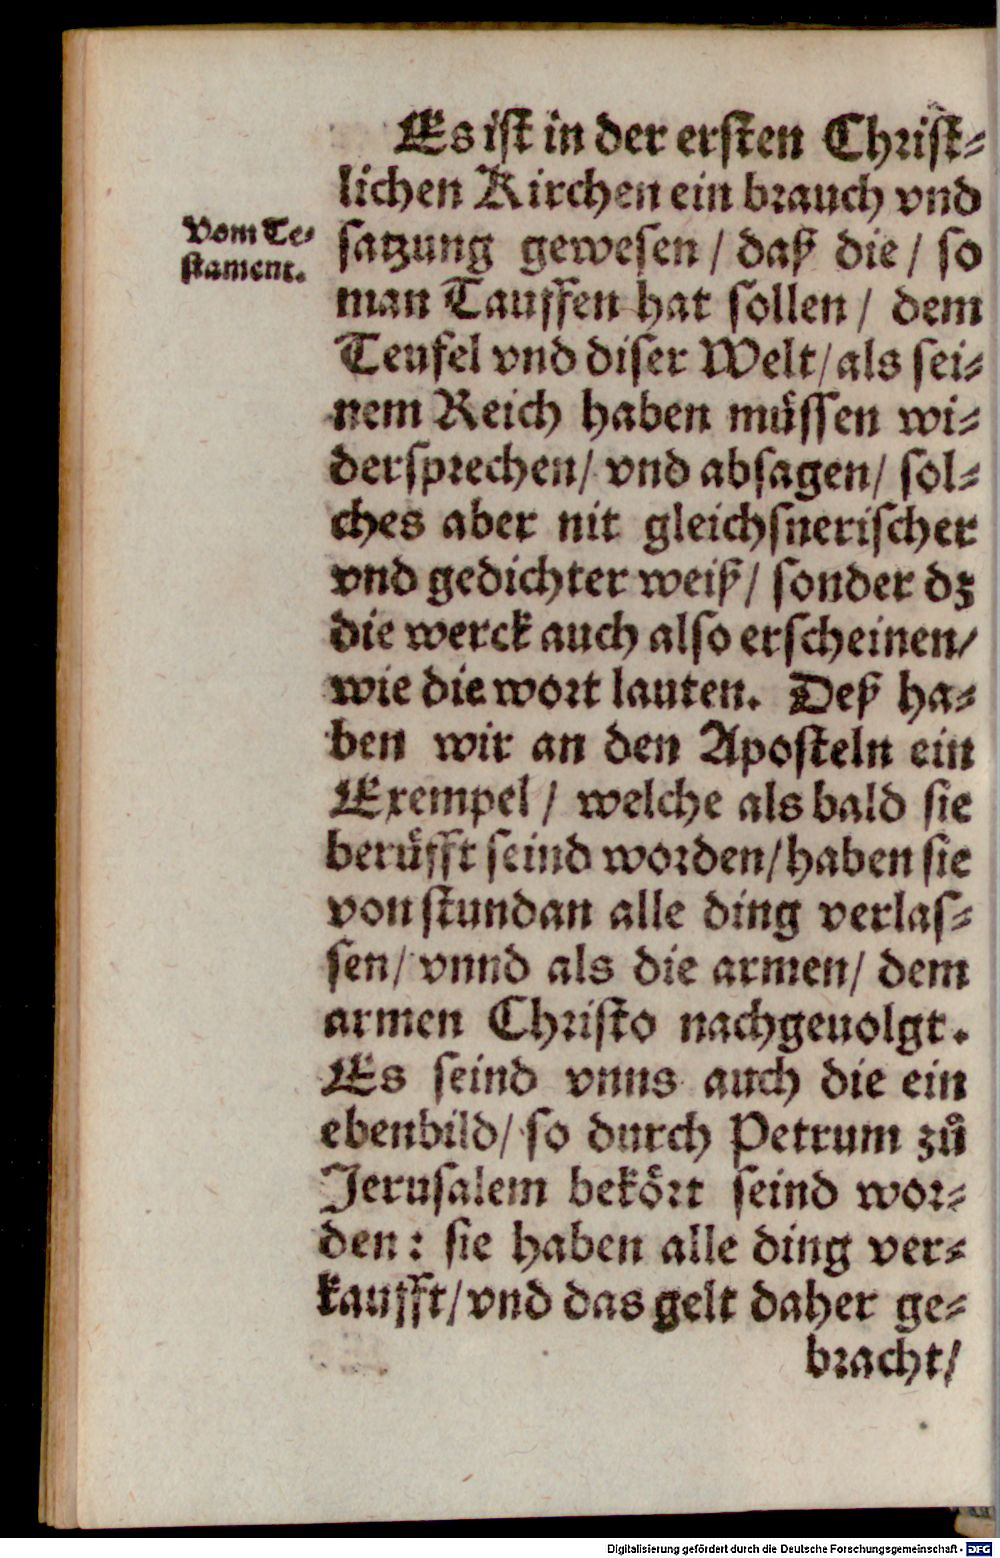 Es ist in der ersten Christ-
lichen Kirchen ein brauch vnd
Vom Te-
stament.
satzung gewesen / daß die / so
man Tauffen hat sollen / dem
Teufel vnd diser Welt / als sei-
nem Reich haben müssen wi-
dersprechen / vnd absagen / sol-
ches aber nit gleichsnerischer
vnd gedichter weiß / sonder dz
die werck auch also erscheinen /
wie die wort lauten. Deß ha-
ben wir an den Aposteln ein
Exempel / welche als bald sie
berüfft seind worden / haben sie
von stundan alle ding verlas-
sen / vnnd als die armen / dem
armen Christo nachgeuolgt.
Es seind vnns auch die ein
ebenbild / so durch Petrum zů
Jerusalem bekört seind wor-
den : sie haben alle ding ver-
kaufft / vnd das gelt daher ge-
bracht /
Digitalisierung gefördert durch die Deutsche Forschungsgemeinschaft - DFG